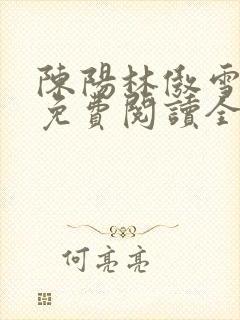 陳陽林傲雪
免費閱讀全
何亮亮